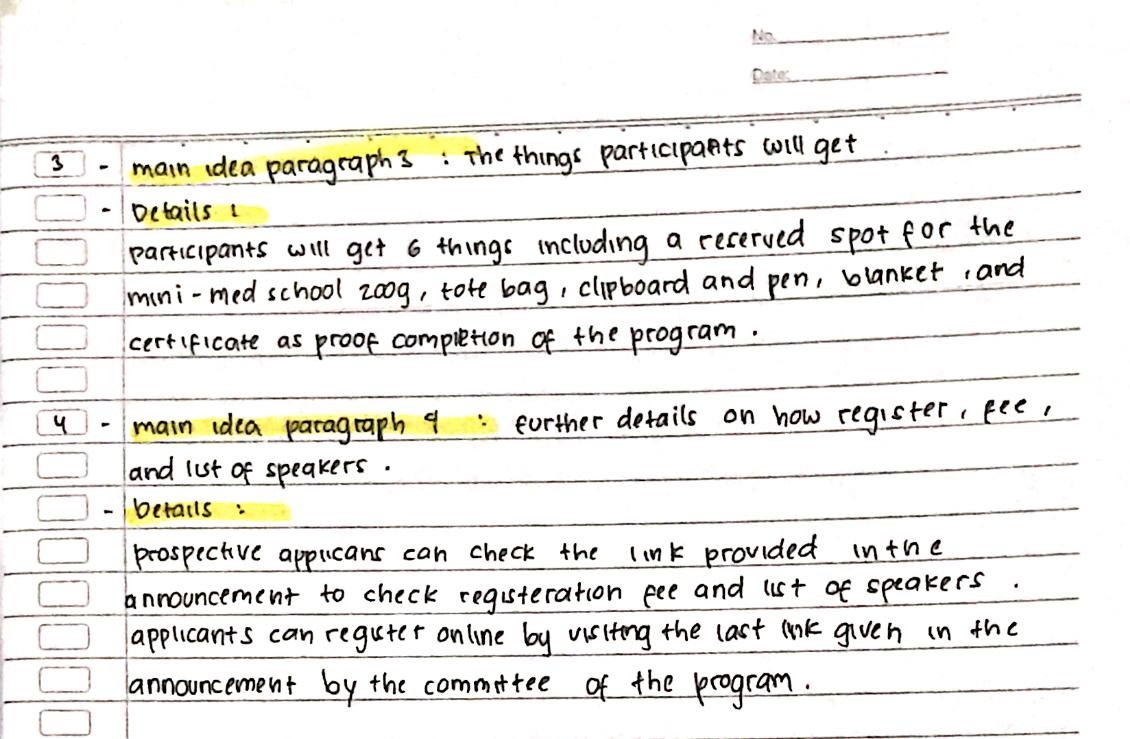 No.
Date:
3 - main idea paragraph 3 : The things participants will get .
- Details :
participants will get 6 things including a reserved spot for the
mini - med school 2009, tote bag, clipboard and pen, blanket, and
certificate as proof completion of the program .
4 - main idea paragraph 4 : further details on how register, fee,
and list of speakers .
- Details :
prospective applicans can check the link provided in the
announcement to check registeration fee and list of speakers .
applicants can register online by visiting the last link given in the
announcement by the committee of the program .